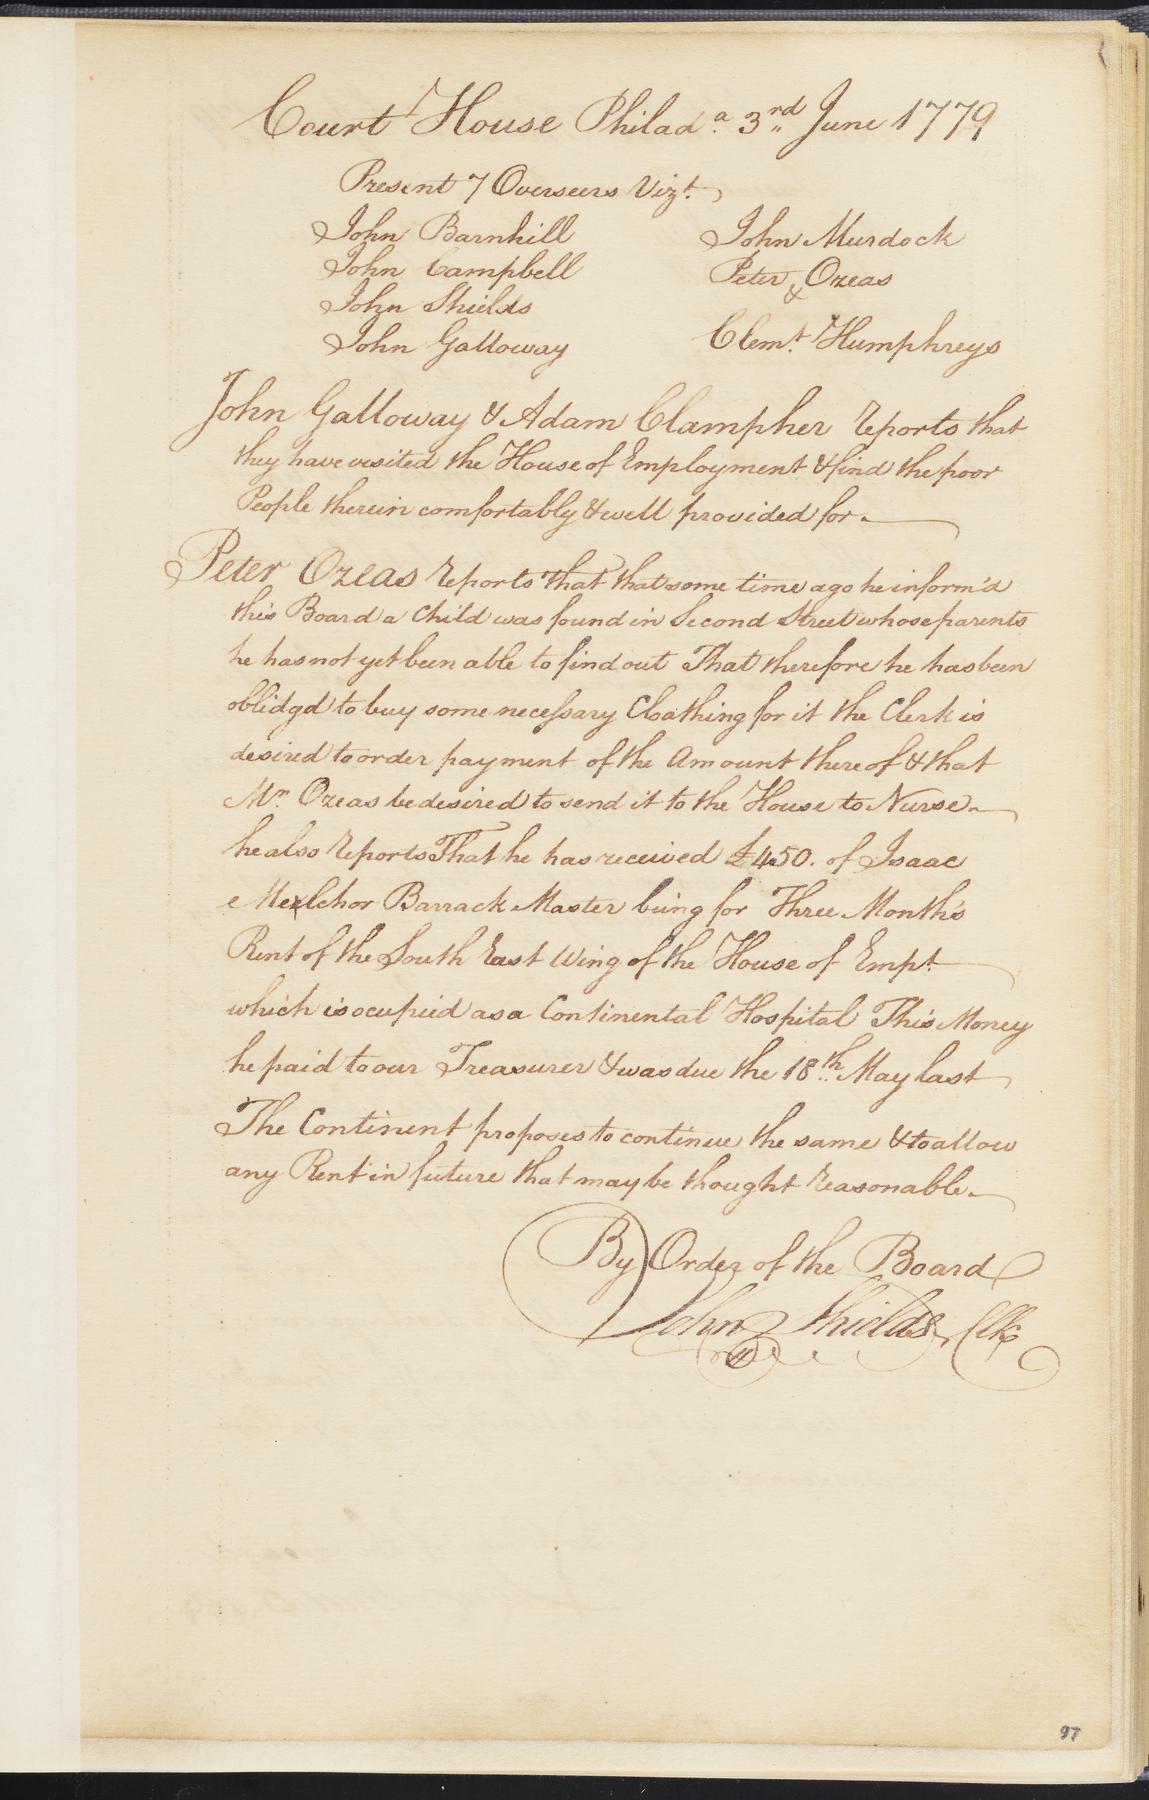 Court House Philada. 3rd June 1779
Present 7 Overseers Vizt.
John Barnhill John Murdock
John Campbell Peter Ozeas
John Shields &
John Galloway Clemt. Humphreys
John Galloway & Adam Clampher reports that
they have visited the House of Employment & find the poor
People therein comfortably & well provided for.
Peter Ozeas reports that that some time ago he inform'd
this Board a Child was found in Second Street whose parents
he has not yet been able to find out That therefore he has been
oblidgd to buy some necessary Cloathing for it the Clerk is
desired to order payment of the Amount thereof & that
Mr. Ozeas be desired to send it to the House to Nurse.
he also reports That he has received £450. of Isaac
Melchor Barrack Master being for Three Month's
Rent of the South East Wing of the House of Empt.
which is ocupied as a Continental Hospital This Money
he paid to our Treasurer & was due the 18th May last
The Continent proposes to continue the same & to allow
any Rent in future that may be thought reasonable.
By Order of the Board
John Shields, Clk
97